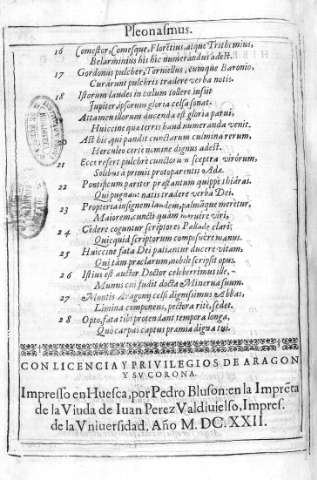 Pleonasmus.
16 Comestor, Comesque, Floretius, atque Trithemius,
Belarminius his hic numerandus adest.
17 Gordonus pulcher, Torniellus, cuinque Baronio,
Curarunt pulchris tradere verba notis.
18 Istorum laudes in cælum tollere insut
Jupiter, ipsorum gloria celsa sonat.
Attamen illorum ducenda est gloria parui,
Huiccine quæ terris haud numeranda venit.
20 Ast hic qui pandit cunctarum culmina rerum,
Hercules certe nomine dignus adest.
21 Ecce refert pulchre cunctorum sceptra virorum,
Solibus a primis protoparentis Adæ.
22 Pontificum pariter præstantum quippe
Qui pugnant natis tradere verba Dei.
23 Propterea insignem laudem, palmamque meretur,
Maiorem cuncti quàm meruire viri,
24 Cedere coguntur scriptores Pallade clari;
Quicquid scriptorum composuere manus.
25 Huiccine fata Dei patiantur ducere vitam,
Qui tàm præclarum, nobile scripsit opus.
26 Istius est auctor Doctor celeberrimus ille,
Munus cui fudit docta Minerva suum.
27 Montis Aragonij celsi dignissimus Abbas,
Limina componens, pectora rite, sedet.
28 Opto, fata tibi protendant tempora longa,
Quo carpas captus præmia digna tui.
CON LICENCIA Y PRIVILEGIOS DE ARAGON
Y SV CORONA.
Impresso en Huesca, por Pedro Bluson: en la Imprẽta
de la Viuda de Iuan Perez Valdiuielso, Impres.
de la Vniuersidad, Año M. DC. XXII.